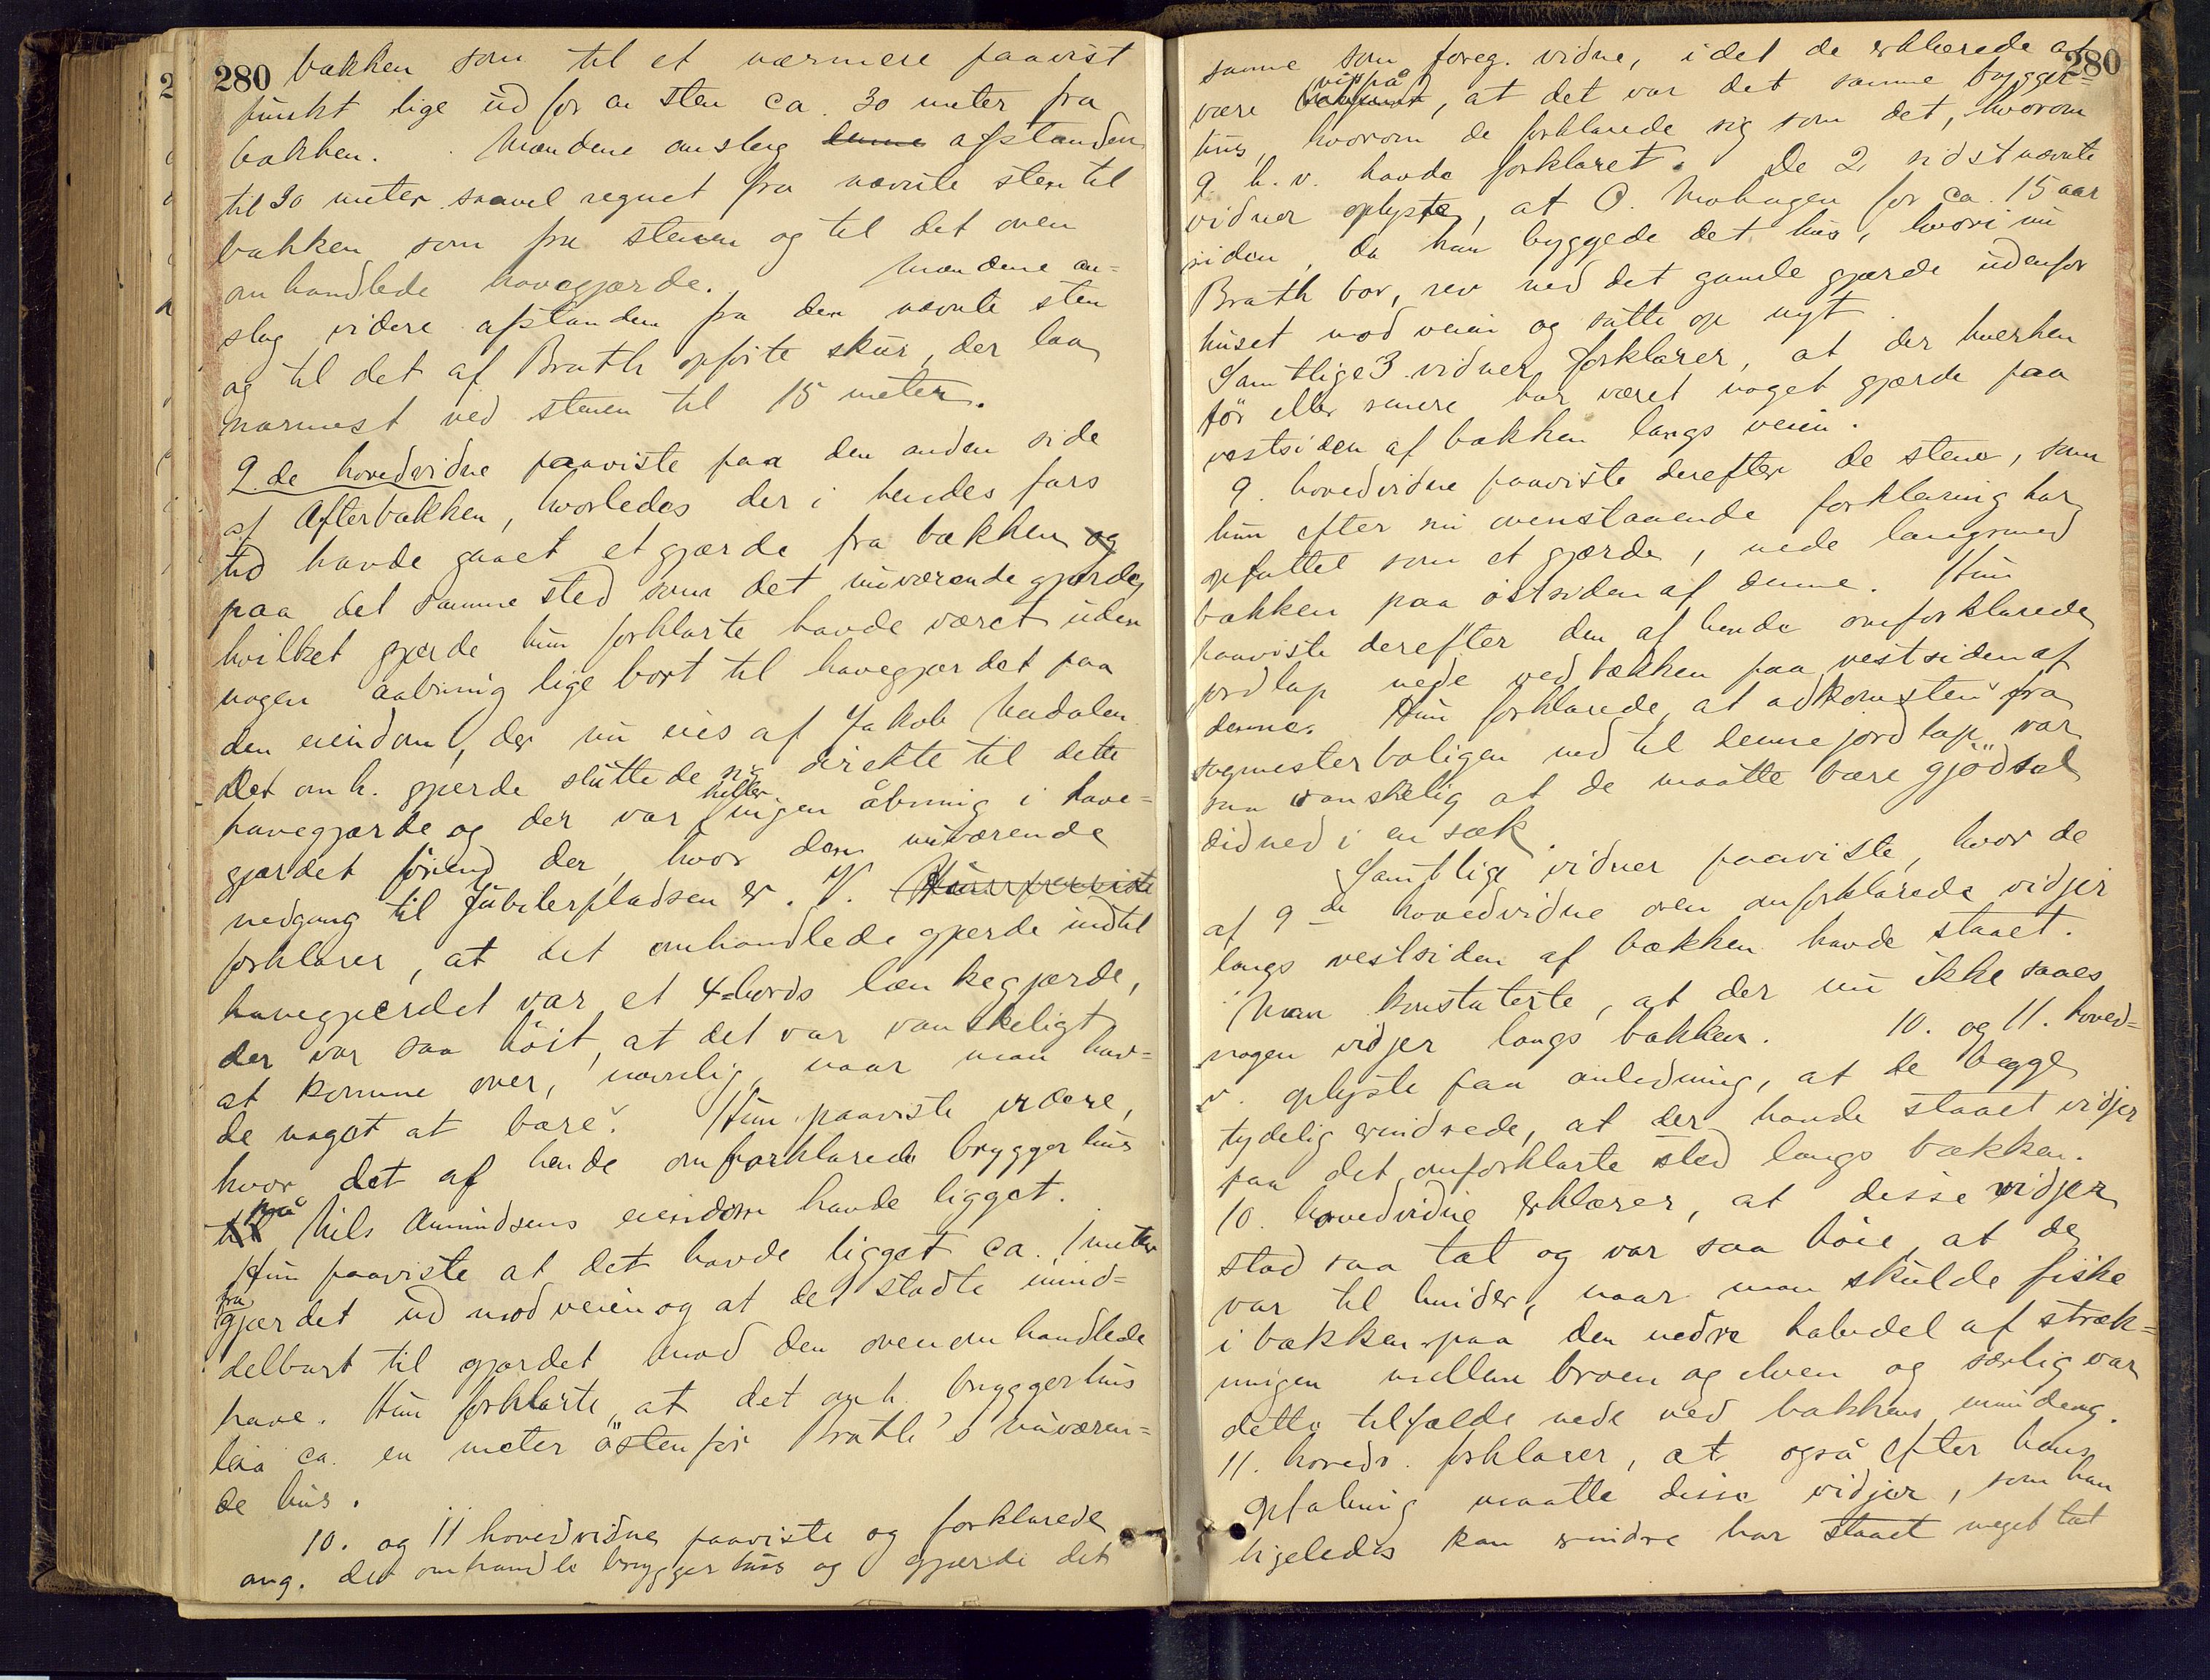 280 bækken som til et nærmere paavist
punkt lige ud for en sten ca. 30 meter fra
bækken. Mændene anslog denne afstanden
til 30 meter saavel regnet fra nævnte sten til
bækken som fra stenen og til det oven
omhandlede havegjærde. Mændene an=
slog videre afstanden fra den nævnte sten
og til det af Brath opførte skur, der laa
nærmest ved stenen til 15 meter.
9de hovedvidne paaviste paa den anden side
af Afterbækken, hvorledes der i hendes fars
tid havde gaaet et gjærde fra bækken og
paa det samme sted som det nuværende gjærde,
hvilket gjærde hun forklarte havde været uden
nogen aabning lige bort til havegjærdet paa
den eiendom, der nu eies af Jakob Medalen.
Det omh. gjerde sluttede sig direkte til dette
havegjærde og der var heller ingen åbning i have=
gjærdet førend der, hvor den nuværende
nedgang til Jubilerpladsen er. V. Hun paaviste
forklarer, at det omhandlede gjerde indtil
havegjerdet var et 4-bords lænkegjærde,
der var saa höit, at det var vanskeligt
at komme over, navnlig naar man hav=
de noget at bære. Hun paaviste videre,
hvor det af hende omforklarede bryggerhus
til på Nils Amundsens eiendom havde ligget.
Hun paaviste at det havde ligget ca. 1 meter
fra gjærdet ud mod veien og at det stødte umid=
delbart til gjærdet mod den ovenomhandlede
have. Hun forklarte at det omh. bryggerhus
laa ca. en meter östenfor Brath's nuværen=
de hus.
10. og 11 hovedvidne paaviste og forklarede
ang. det omhandle bryggerhus og gjærde det
280
samme som foreg. vidne, idet de erklærede at
være vis på, at det var det samme brygger=
hus, hvorom de forklarede sig som det, hvorom
9 h.v. havde forklaret. De 2 sidstnævnte
vidner oplyste, at O. Mohagen for ca. 15 aar
siden, da han byggede det hus, hvori nu
Brath bor, rev ned det gamle gjærde udenfor
huset mod veien og satte op nyt.
Samtlige 3 vidner forklarer, at der hverken
før eller senere har været noget gjærde paa
vestsiden af bækken langs veien.
9. hovedvidne paaviste derefter de stene, som
hun efter sin ovenstaaende forklaring har
opfattet som et gjærde, nede langsmed
bækken paa östsiden af denne. Hun
paaviste derefter den af hende omforklarede
jordlap nede ved bækken paa vestsiden af
denne. Hun forklarede, at adkomsten fra
sagmesterboligen ned til denne jordlap var
saa vanskelig at de maatte bære gjödsel
did ned i en sæk.
Samtlige vidner paaviste, hvor de
af 9de hovedvidne oven omforklarede vidjer
langs vestsiden af bækken havde staaet.
Man konstaterte, at der nu ikke saaes
nogen vidjer langs bækken. 10. og 11. hoved=
v. oplyste paa anledning, at de begge
tydelig erindrede, at der havde staaet vidjer
paa det omforklarte sted langs bækken.
10. hovedvidne erklærer, at disse vidjer
stod saa tæt og var saa höie, at de
var til hinder, naar man skulde fiske
i bækken paa den nedre halvdel af stræk=
ningen mellem broen og elven og særlig var
dette tilfælde nede ved bækkens munding.
11. hovedv. forklarer, at også efter hans
opfatning maatte disse vidjer, som han
ligeledes kan erindre har staaet meget tæt